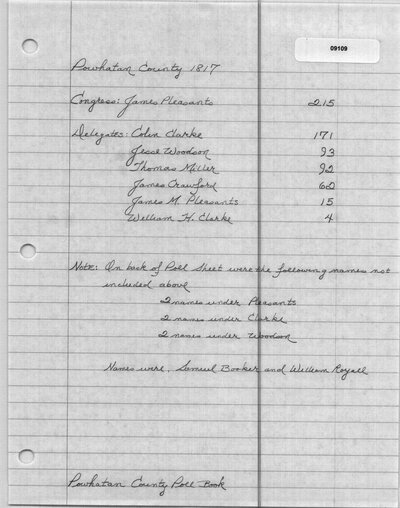 09109
Powhatan County 1817
Congress: James Pleasants 215
Delegates: Colin Clarke 171
Jesse Woodson 93
Thomas Miller 92
James Crawford 62
James M. Pleasants 15
William H. Clarke 4
Note: On back of Poll Sheet were the following names not
included above
2 names under Pleasants
2 names under Clarke
2 names under Woodson
Names were, Samuel Booker and William Royall
Powhatan County Poll Book